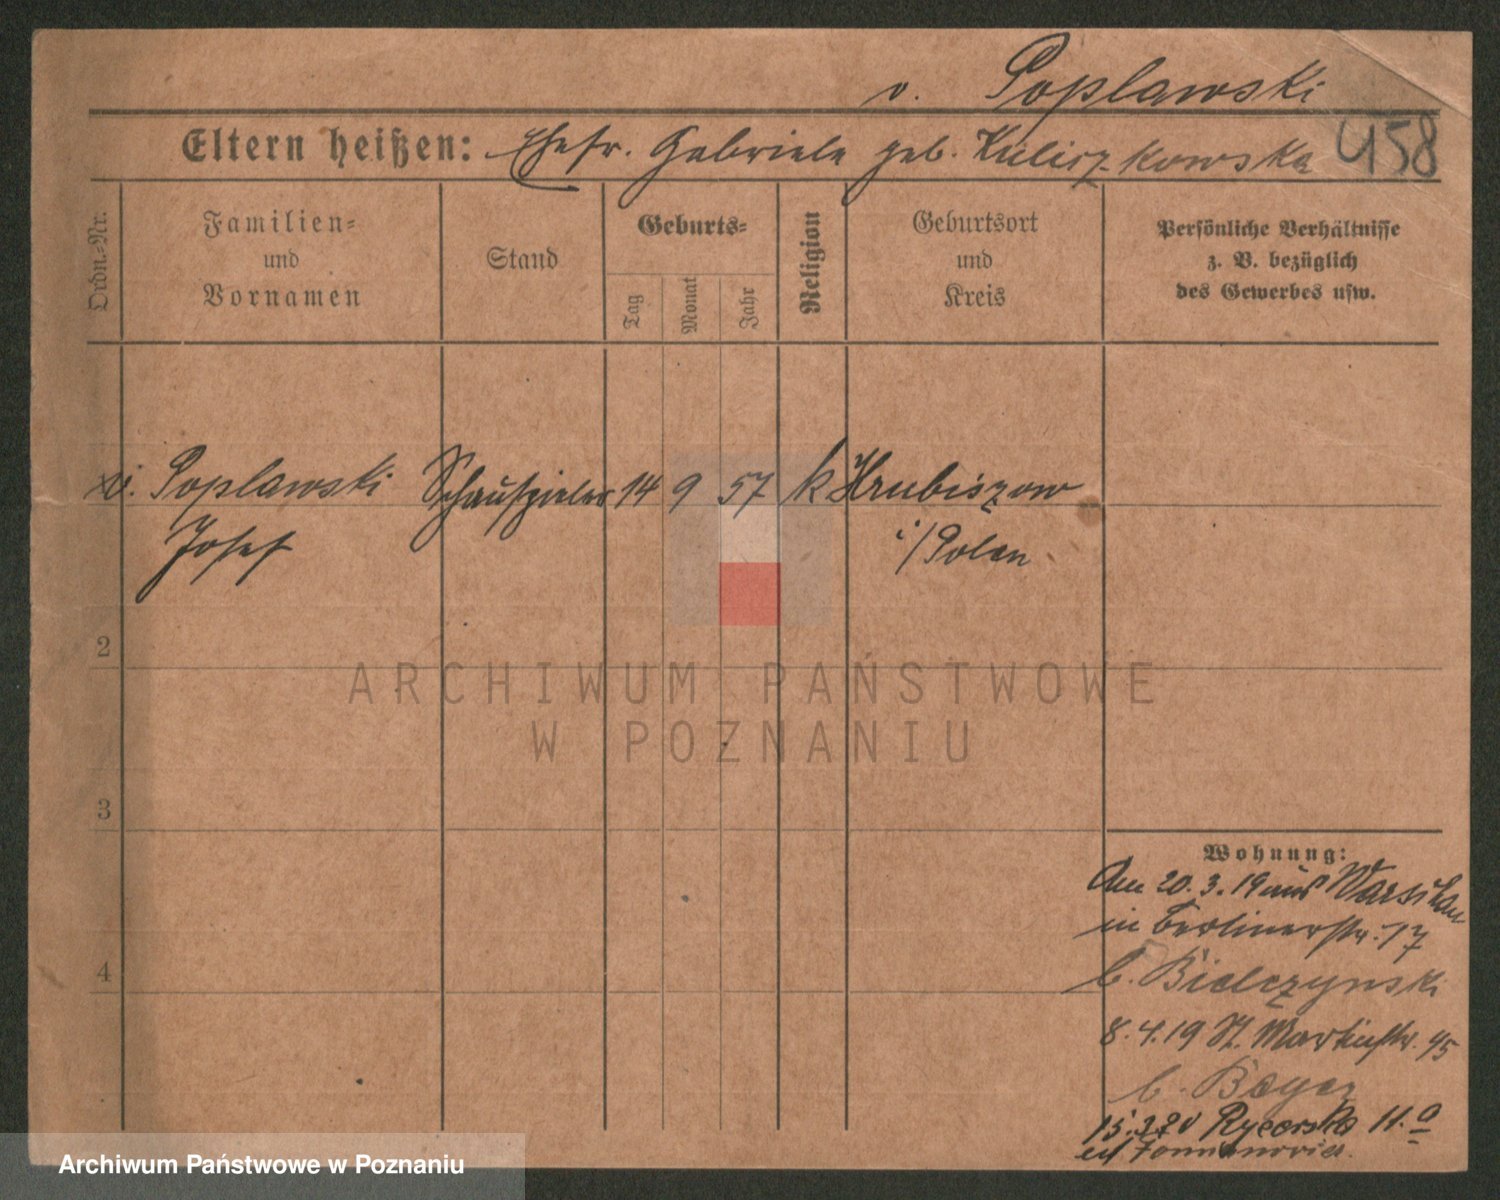 v. Poplawski
Eltern heißen: Ehefr. Gabriele geb. Kuliszkowska 458
Ordn.-Nr.
Familien-
und
Vornamen
Stand
Geburts-
Tag
Monat
Jahr
Religion
Geburtsort
und
Kreis
Persönliche Verhältnisse
z. B. bezüglich
des Gewerbes usw.
v. Poplawski Schauspieler 14 9 57 k Hrubiszow
Josef i/Polen
2
3
4
Wohnung:
Am 20.3.19 aus Warschau
in Berlinerstr. 17
b. Bielczynski
8.4.19 St. Martinstr. 45
b. Beyer
15.3.20 Rycerska 11.a
ARCHIWUM PAŃSTWOWE
W POZNANIU
Archiwum Państwowe w Poznaniu